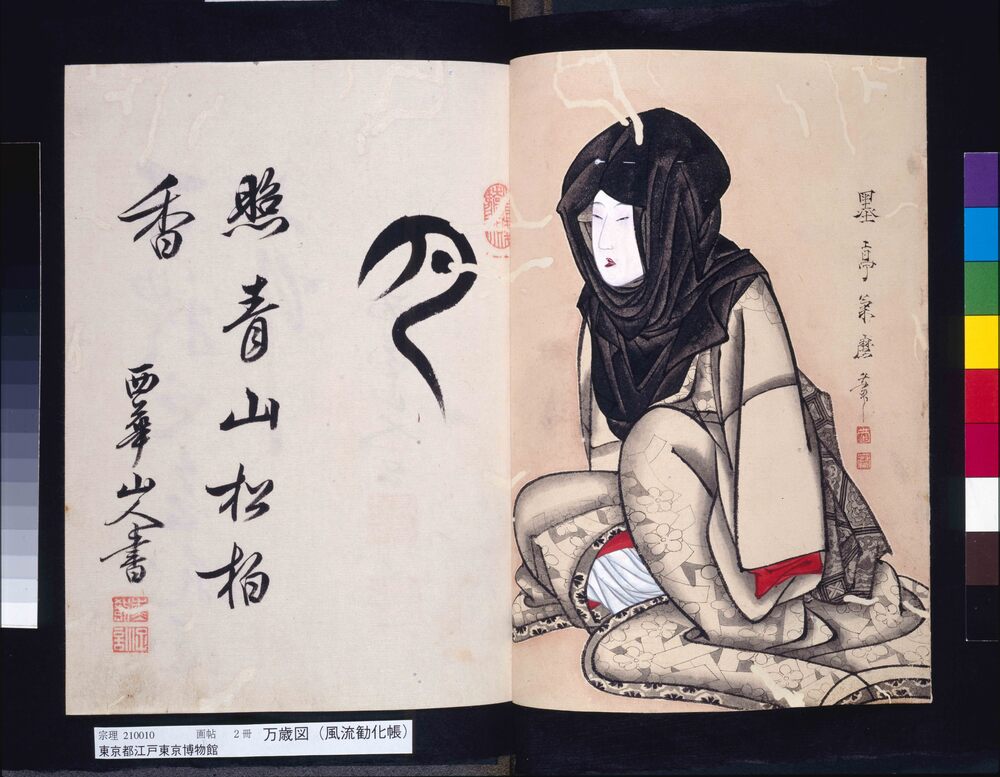 墨亭菊麿筆
月
照青山松柏
香
西華山人書
宗理 210010 画帖 2冊 万歳図（風流勧化帳）
東京都江戸東京博物館